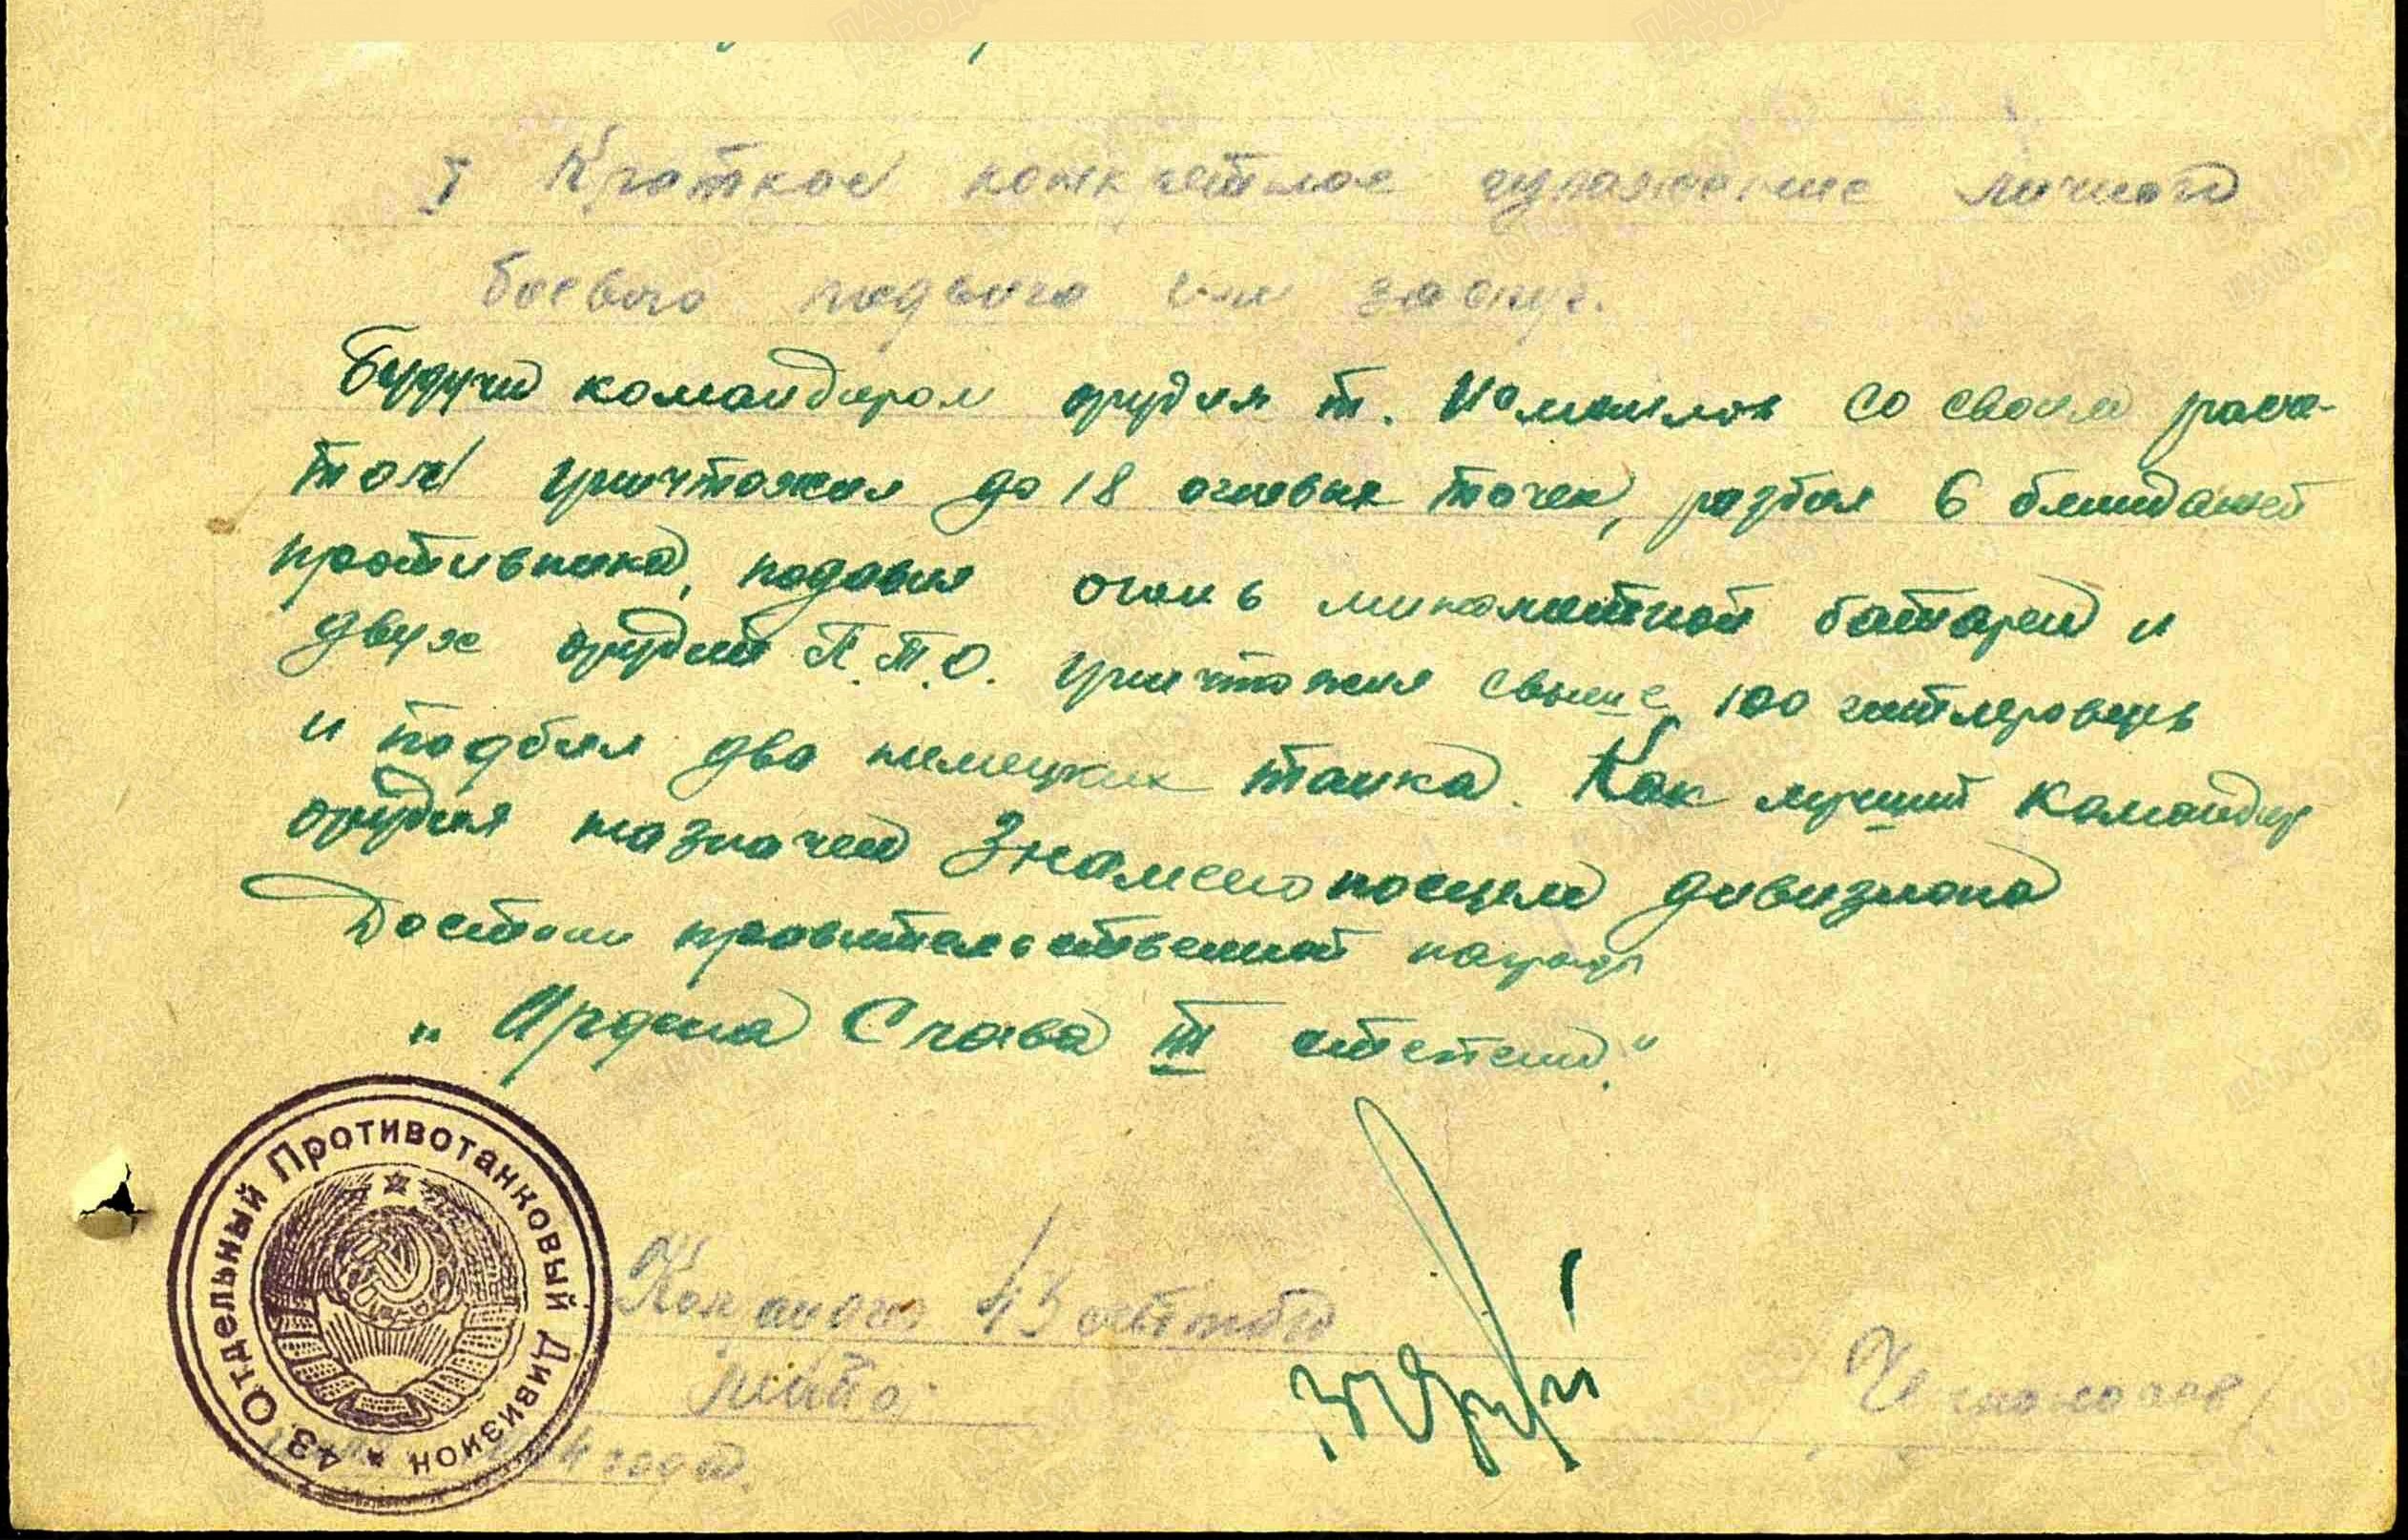 I Краткое конкретное изложение личного
боевого подвига или заслуг.
Будучи командиром орудия т. со своим расче-
том уничтожил до 18 огневых точек, разбил 6 блиндажей
противника, подавил огонь минометной батареи и
двух орудий П.Т.О. уничтожил свыше 100 гитлеровцев
и подбил два немецких танка. Как лучший командир
орудия назначен Знаменосцем дивизиона
Достоин правительственной награды
„Ордена Слава III степени."
43 Отдельный Противотанковый Дивизион
43
года.